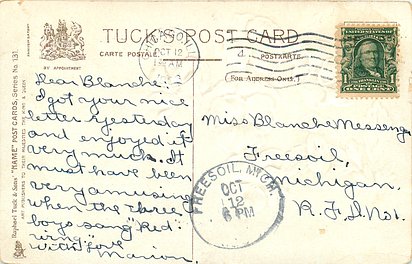 TUCK'S POST CARD
CARTE POSTALE
POSTKARTE
BY APPOINTMENT
(FOR ADDRESS ONLY.)
OCT 12
AM
Raphael Tuck & Sons' "NAME" POST CARDS, Series No. 131.
ART PUBLISHERS TO THEIR MAJESTIES THE KING & QUEEN.
Dear Blanche:
I got your nice
letter yesterday
and enjoyed it
very much. It
must have been
very amusing
when the three
boys sang "Red
wing" With love
Marion.
Miss Blanche Messeng
Freesoil,
Michigan.
R.F.D. No 1.
FREESOIL, MICH.
OCT
12
6 PM
1